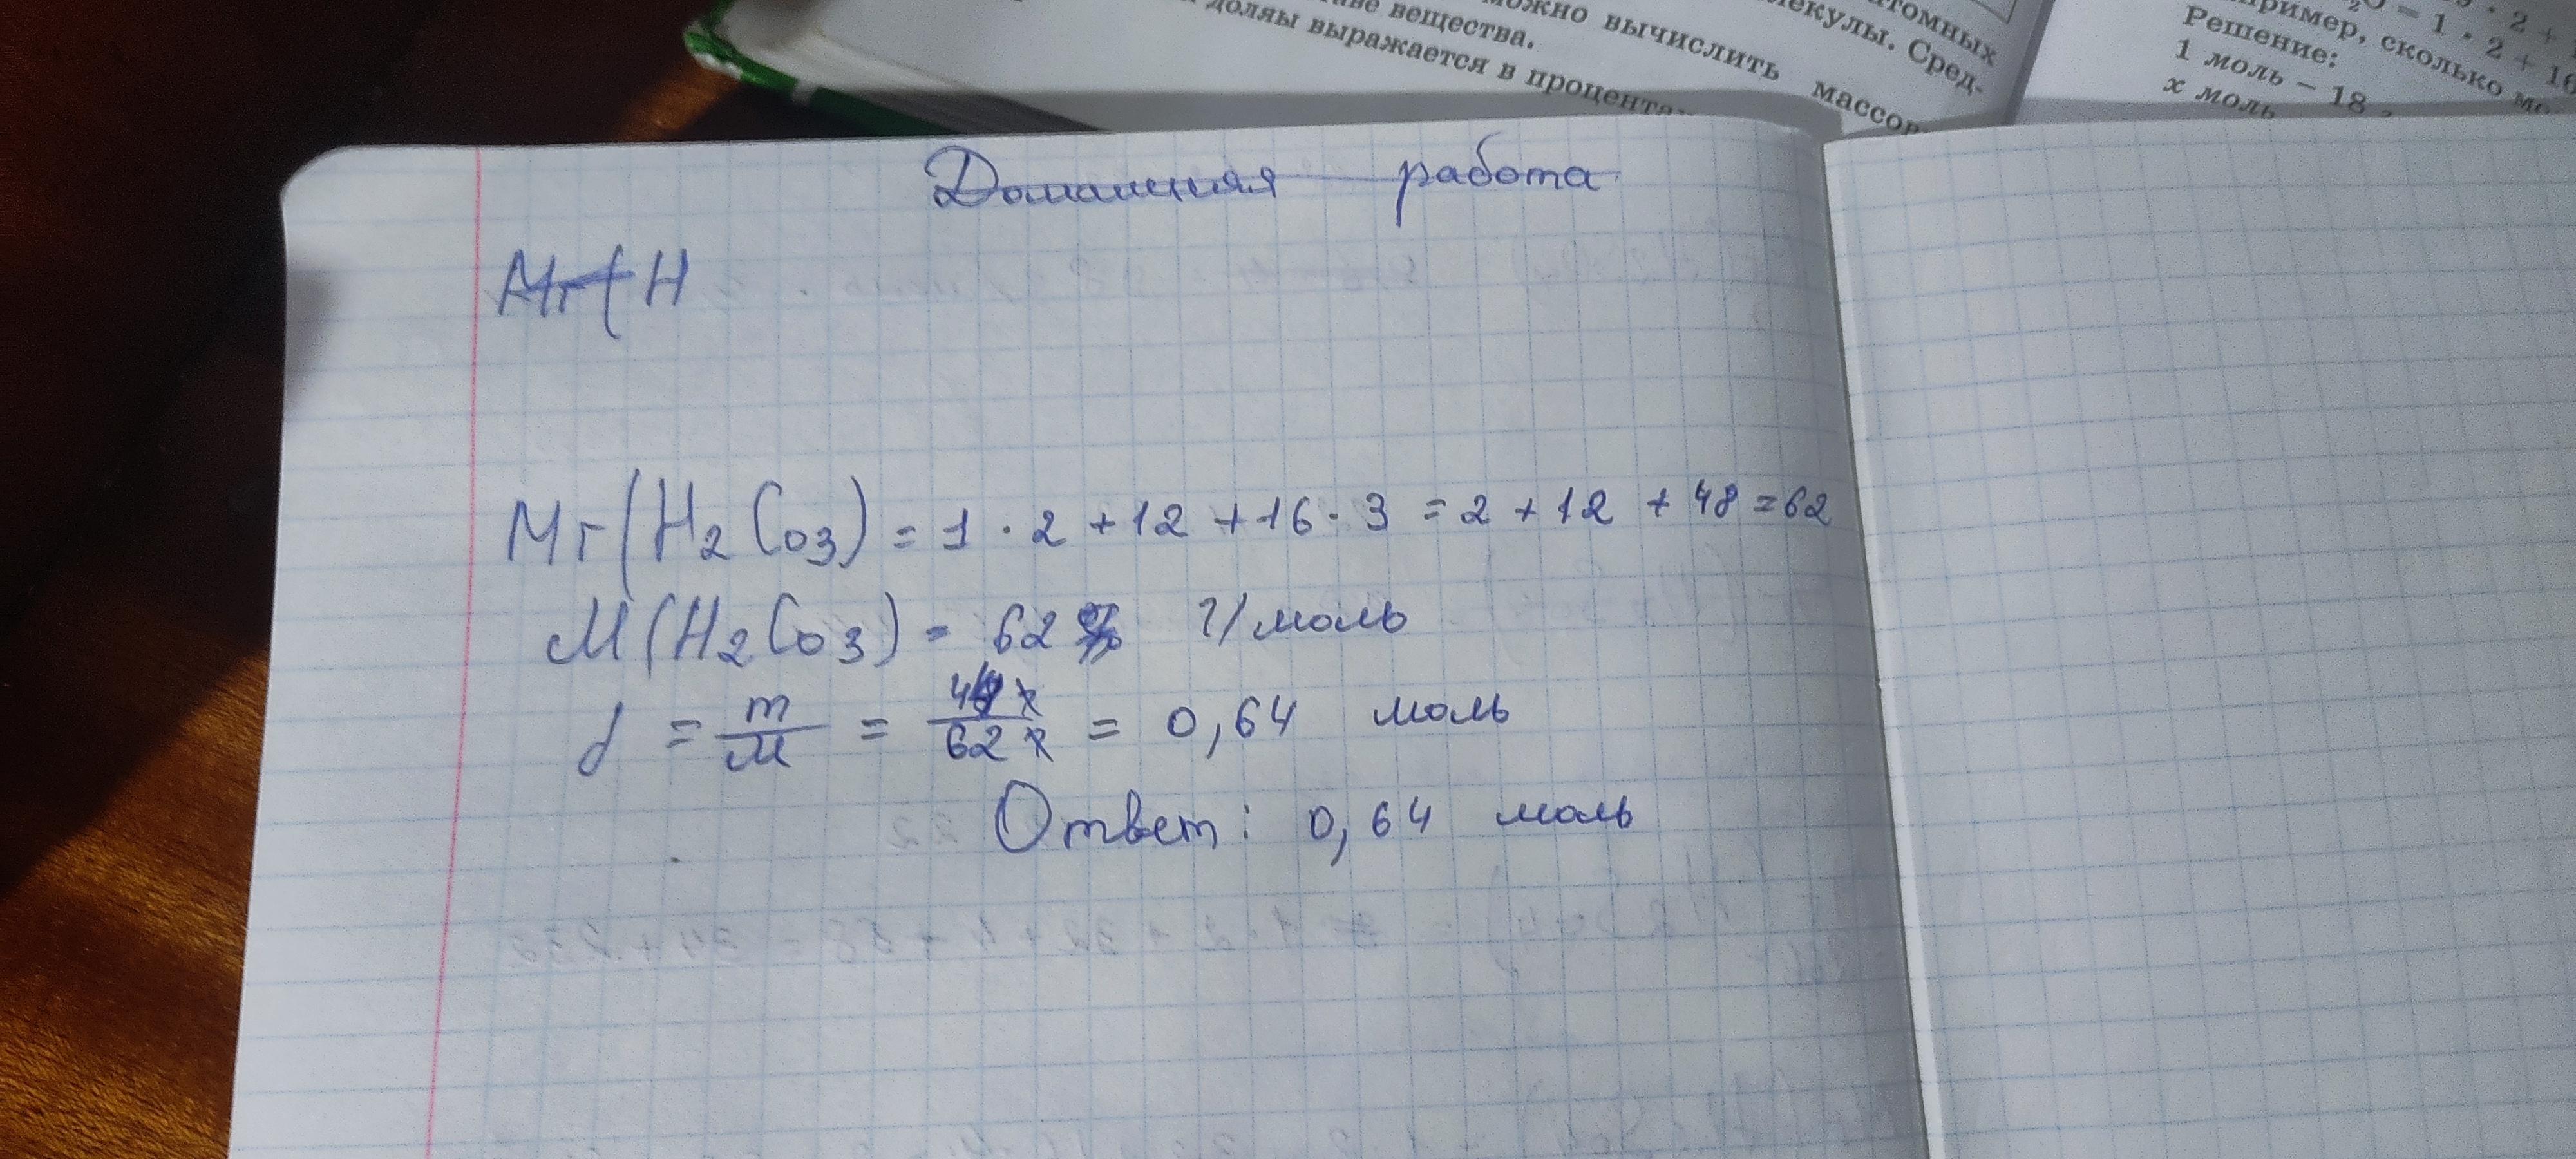 аве вещества.
ожно вычислить массов
доляы выражается в процента
атомных
лекулы. Сред-
= 1 · 2 + 16
пример, сколько мо
Решение:
1 моль – 18 г
x моль
Домашняя работа
Mr(H
Mr(H2Co3) = 1 · 2 + 12 + 16 · 3 = 2 + 12 + 48 = 62
M(H2Co3) = 62 г/моль
= m/M = /62 г = 0,64 моль
Ответ: 0,64 моль